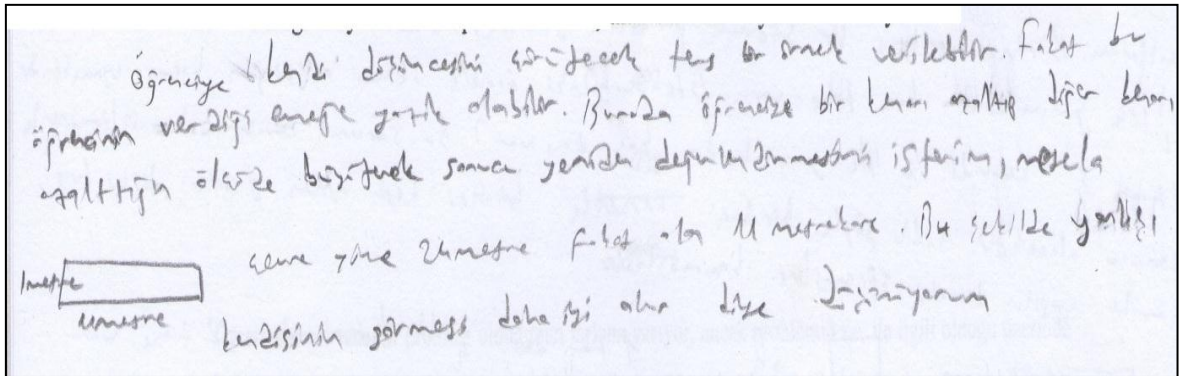 öğrenciye düşüncesini çürütecek ters bir örnek verilebilir. Fakat bu
öğrencinin verdiği emeğe yazık olabilir. Burada öğrencize bir kenarı azaltıp diğer kenarı
azalttığın ölçüde büyüterek sonucu yeniden değerlendirmesini isterim, mesela
çevre yine 24 metre fakat alan 11 metrekare. Bu şekilde yanlışı
1metre
11metre
kendisinin görmesi daha iyi olur diye düşünüyorum